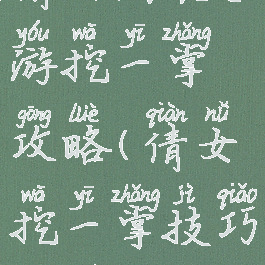 yóu wā yī zhǎng
游挖一掌
gōng lüè qiàn nǚ
攻略(倩女
wā yī zhǎng jì qiǎo
挖一掌技巧